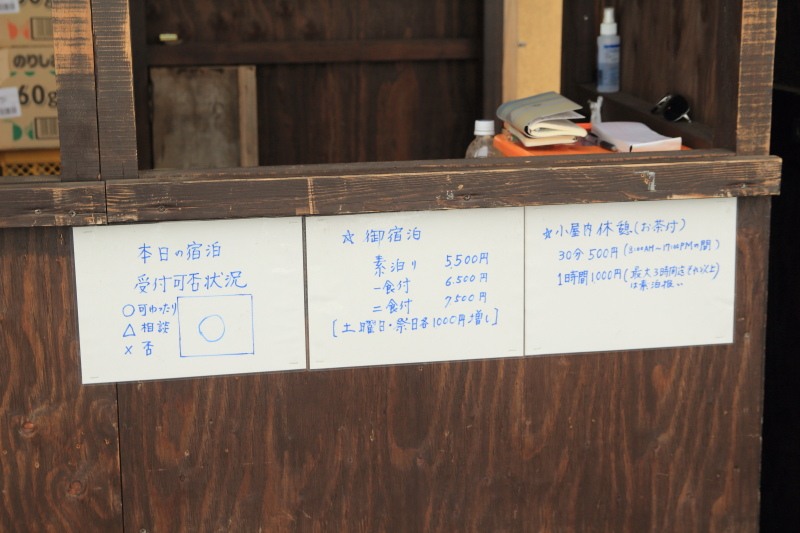 のりし
60g
本日の宿泊
受付可否状況
○可ゆったり
△相談
×否
☆御宿泊
素泊り 5,500円
一食付 6,500円
二食付 7,500円
[土曜日・祭日各1000円増し]
☆小屋内休憩(お茶付)
30分 500円(8:00AM~17:00PMの間)
1時間 1,000円(最大3時間迄それ以上)
は素泊扱い